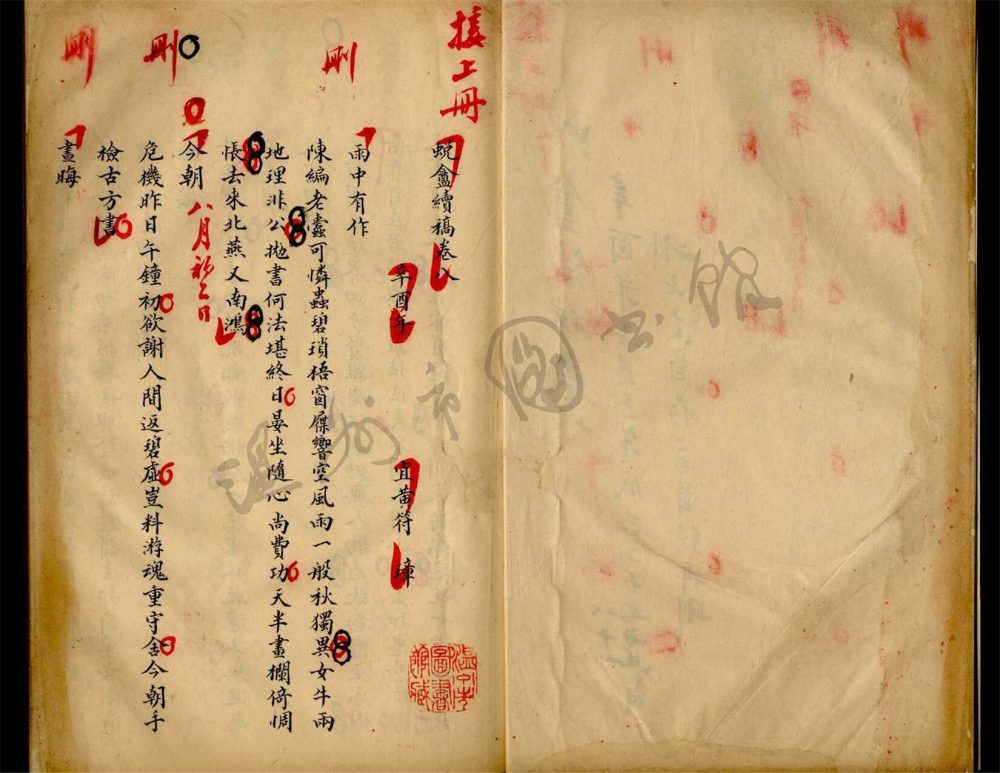 接上冊
蛻盦續稿卷八
辛酉年 宜黄符 璋
刪
雨中有作
陳編老蠹可憐蟲碧瑣梧窗屧響空風雨一般秋獨異女牛兩
地理非公抛書何法堪終日晏坐隨心尚費功天半畫欄倚惆
悵去來北燕又南鴻
刪
今朝 八月初三日
危機昨日午鐘初欲謝人間返碧虛豈料游魂重守舍今朝手
檢古方書
刪
晝晦
溫州市圖書館
溫州市圖書館藏